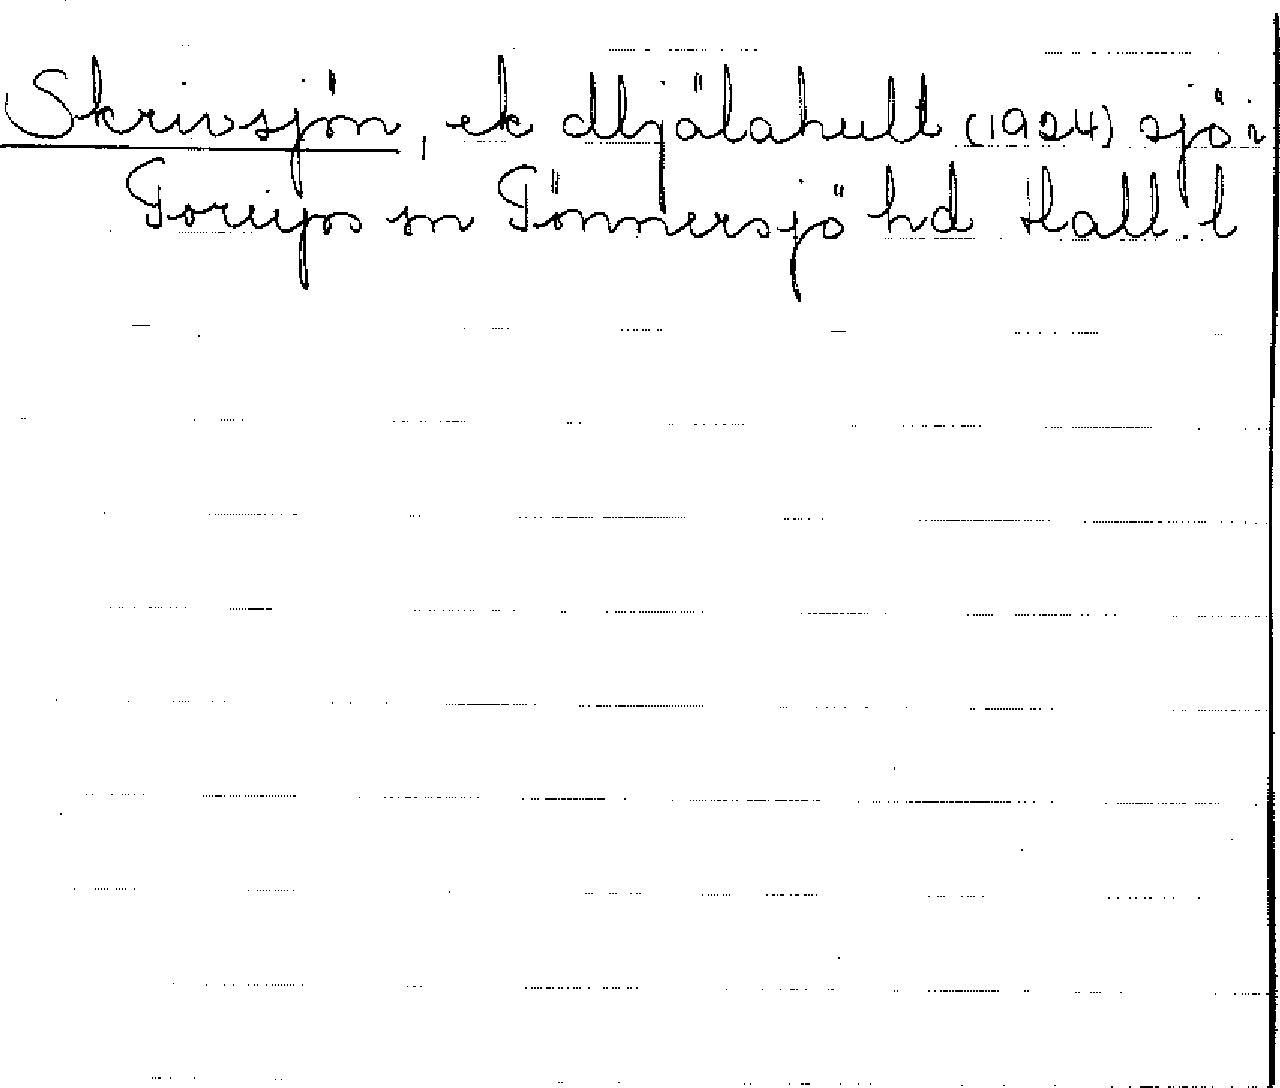 Skrivsjön, ek Mjälahult (1924) sjö i
Torups sn Tönnersjö hd Hall. l